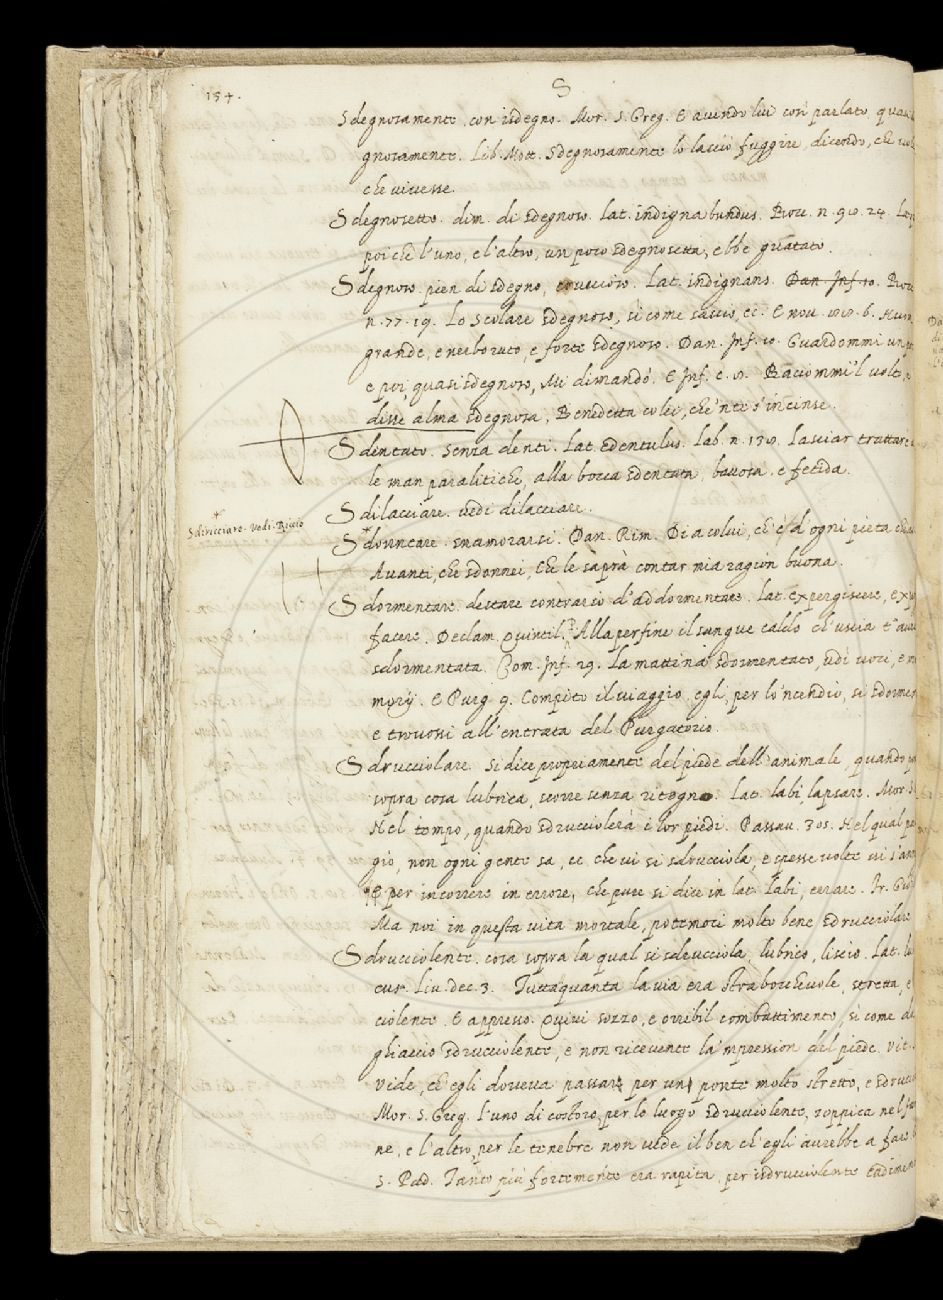 154.
S
Sdegnosamente. con isdegno. Mor. S. Greg. E avendo lui così parlato, quasi
gnosamente. Lib. Mott. Sdegnosamente lo lasciò fuggire, dicendo, che
che vivesse.
Sdegnosetto. dim. di sdegnoso. Lat. indignabundus. Bocc. n. 90. 24.
poichè l'uno, e l'altro, un poco sdegnosetta, ebbe guatato.
Sdegnoso. pien di sdegno, cruccioso. Lat. indignans. Dan. Inf. 10. Bocc
n. 77. 19. Lo scolare sdegnoso, sì come savio, ec. E nov.
grande, e nerboruto, e forte sdegnoso. Dan. Inf. 10. Guardommi un
e poi, quasi sdegnoso, Mi dimandò. E Inf. c. 8. Baciommi'l volto, e
disse alma sdegnosa, Benedetta colei, che'n te s'incinse.
Sdentato. senza denti. Lat. edentulus. Lab. n. 130. Lasciar trattare
le man paralitiche, alla bocca sdentata, bavosa, e fetida.
Sdilacciare. vedi dilacciare.
Sdiricciare. vedi. Riccio
Sdonneare. snamorarsi. Dan. Rim. Di a colui, ch'è d'ogni pietà
Avanti, che sdonnei, Che le saprà contar mia ragion buona.
Sdormentare. destare contrario d'addormentare. Lat. expergiscere,
facere. Declam. Quintil. P. Alla perfine il sangue caldo ch'uscia t'
sdormentata. Com. Inf. 29. La mattina sdormentato, udì voci, e
morij. E Purg. 9. Compito il viaggio, egli, per lo'ncendio, si
e trovossi all'entrata del Purgatorio.
Sdrucciolare. si dice propriamente del piede dell'animale, quando
sopra cosa lubrica, scorre senza ritegno. Lat. labi, lapsare. Mor. S.
Nel tempo, quando sdrucciolerà i lor piedi. Passav. 305. Nel qual
gio, non ogni gente sa, ec. che vi si sdrucciola, e spesse volte vi
E per incorrere in errore, che pure si dice in lat. Labi, errare. Fr.
Ma noi in questa vita mortale, potemoci molto bene sdrucciolare
Sdrucciolente. cosa sopra la qual si sdrucciola, lubrico, liscio. Lat.
cus. Liv. dec. 3. Tuttaquanta la via era strabocchevole, stretta, e
ciolente. E appresso. Quivi sozzo, e orribil combattimento, sì come
ghiaccio sdrucciolente, e non ricevente la'mpression del piede.
vide, ch'egli doveva passare per un ponte molto stretto, e
Mor. S. Greg. L'uno di costoro, per lo luogo sdrucciolente, zoppica nel
ne, e l'altro, per le tenebre non vede il ben ch'egli avrebbe a fare
S. Pad. Tanto più fortemente era rapita, per isdrucciolente